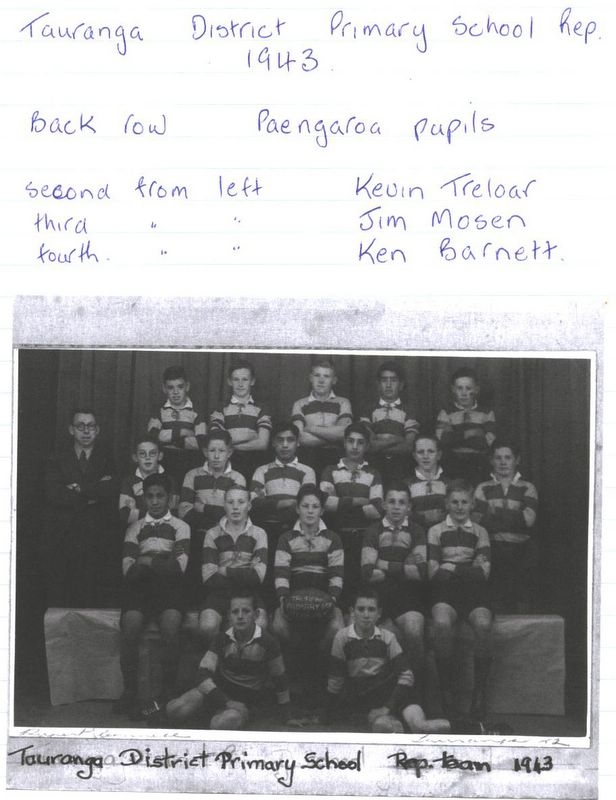 Tauranga District Primary School Rep.
1943
Back row Paengaroa pupils
second from left Kevin Treloar
third " " Jim Mosen
fourth. " " Ken Barnett.
Tauranga District Primary School Rep. team 1943